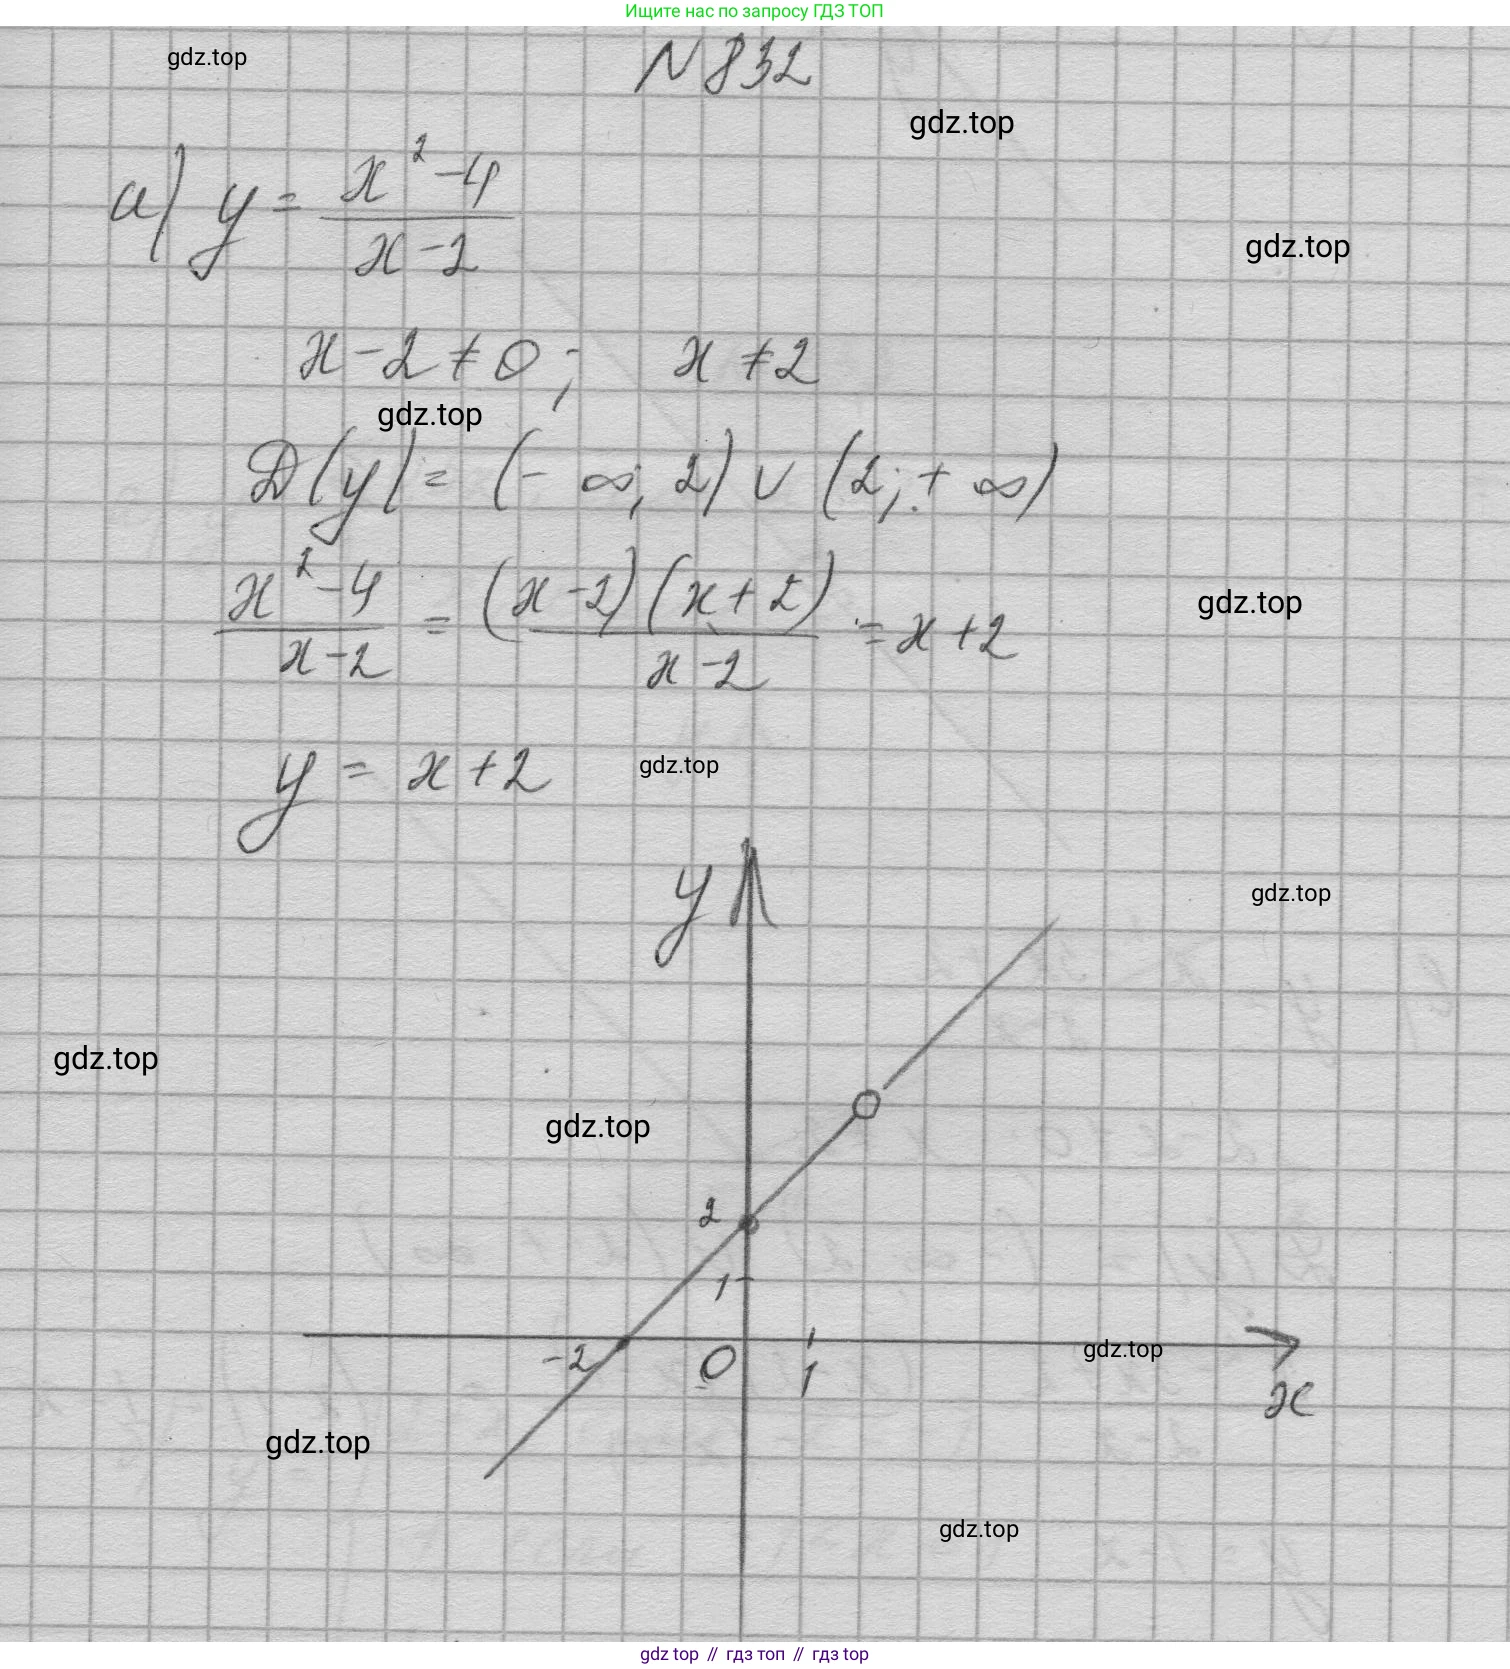 Ищите нас по запросу ГДЗ ТОП
gdz.top
N 832
gdz.top
а) y = (x² - 4)/(x - 2)
gdz.top
x - 2 ≠ 0; x ≠ 2
gdz.top
D(y) = (- ∞; 2) ∪ (2; + ∞)
(x² - 4)/(x - 2) = ((x - 2)(x + 2))/(x - 2) = x + 2
gdz.top
y = x + 2
gdz.top
y
gdz.top
gdz.top
gdz.top
2
1
-2
0
1
gdz.top
x
gdz.top
gdz.top
gdz top // гдз топ // гдз top